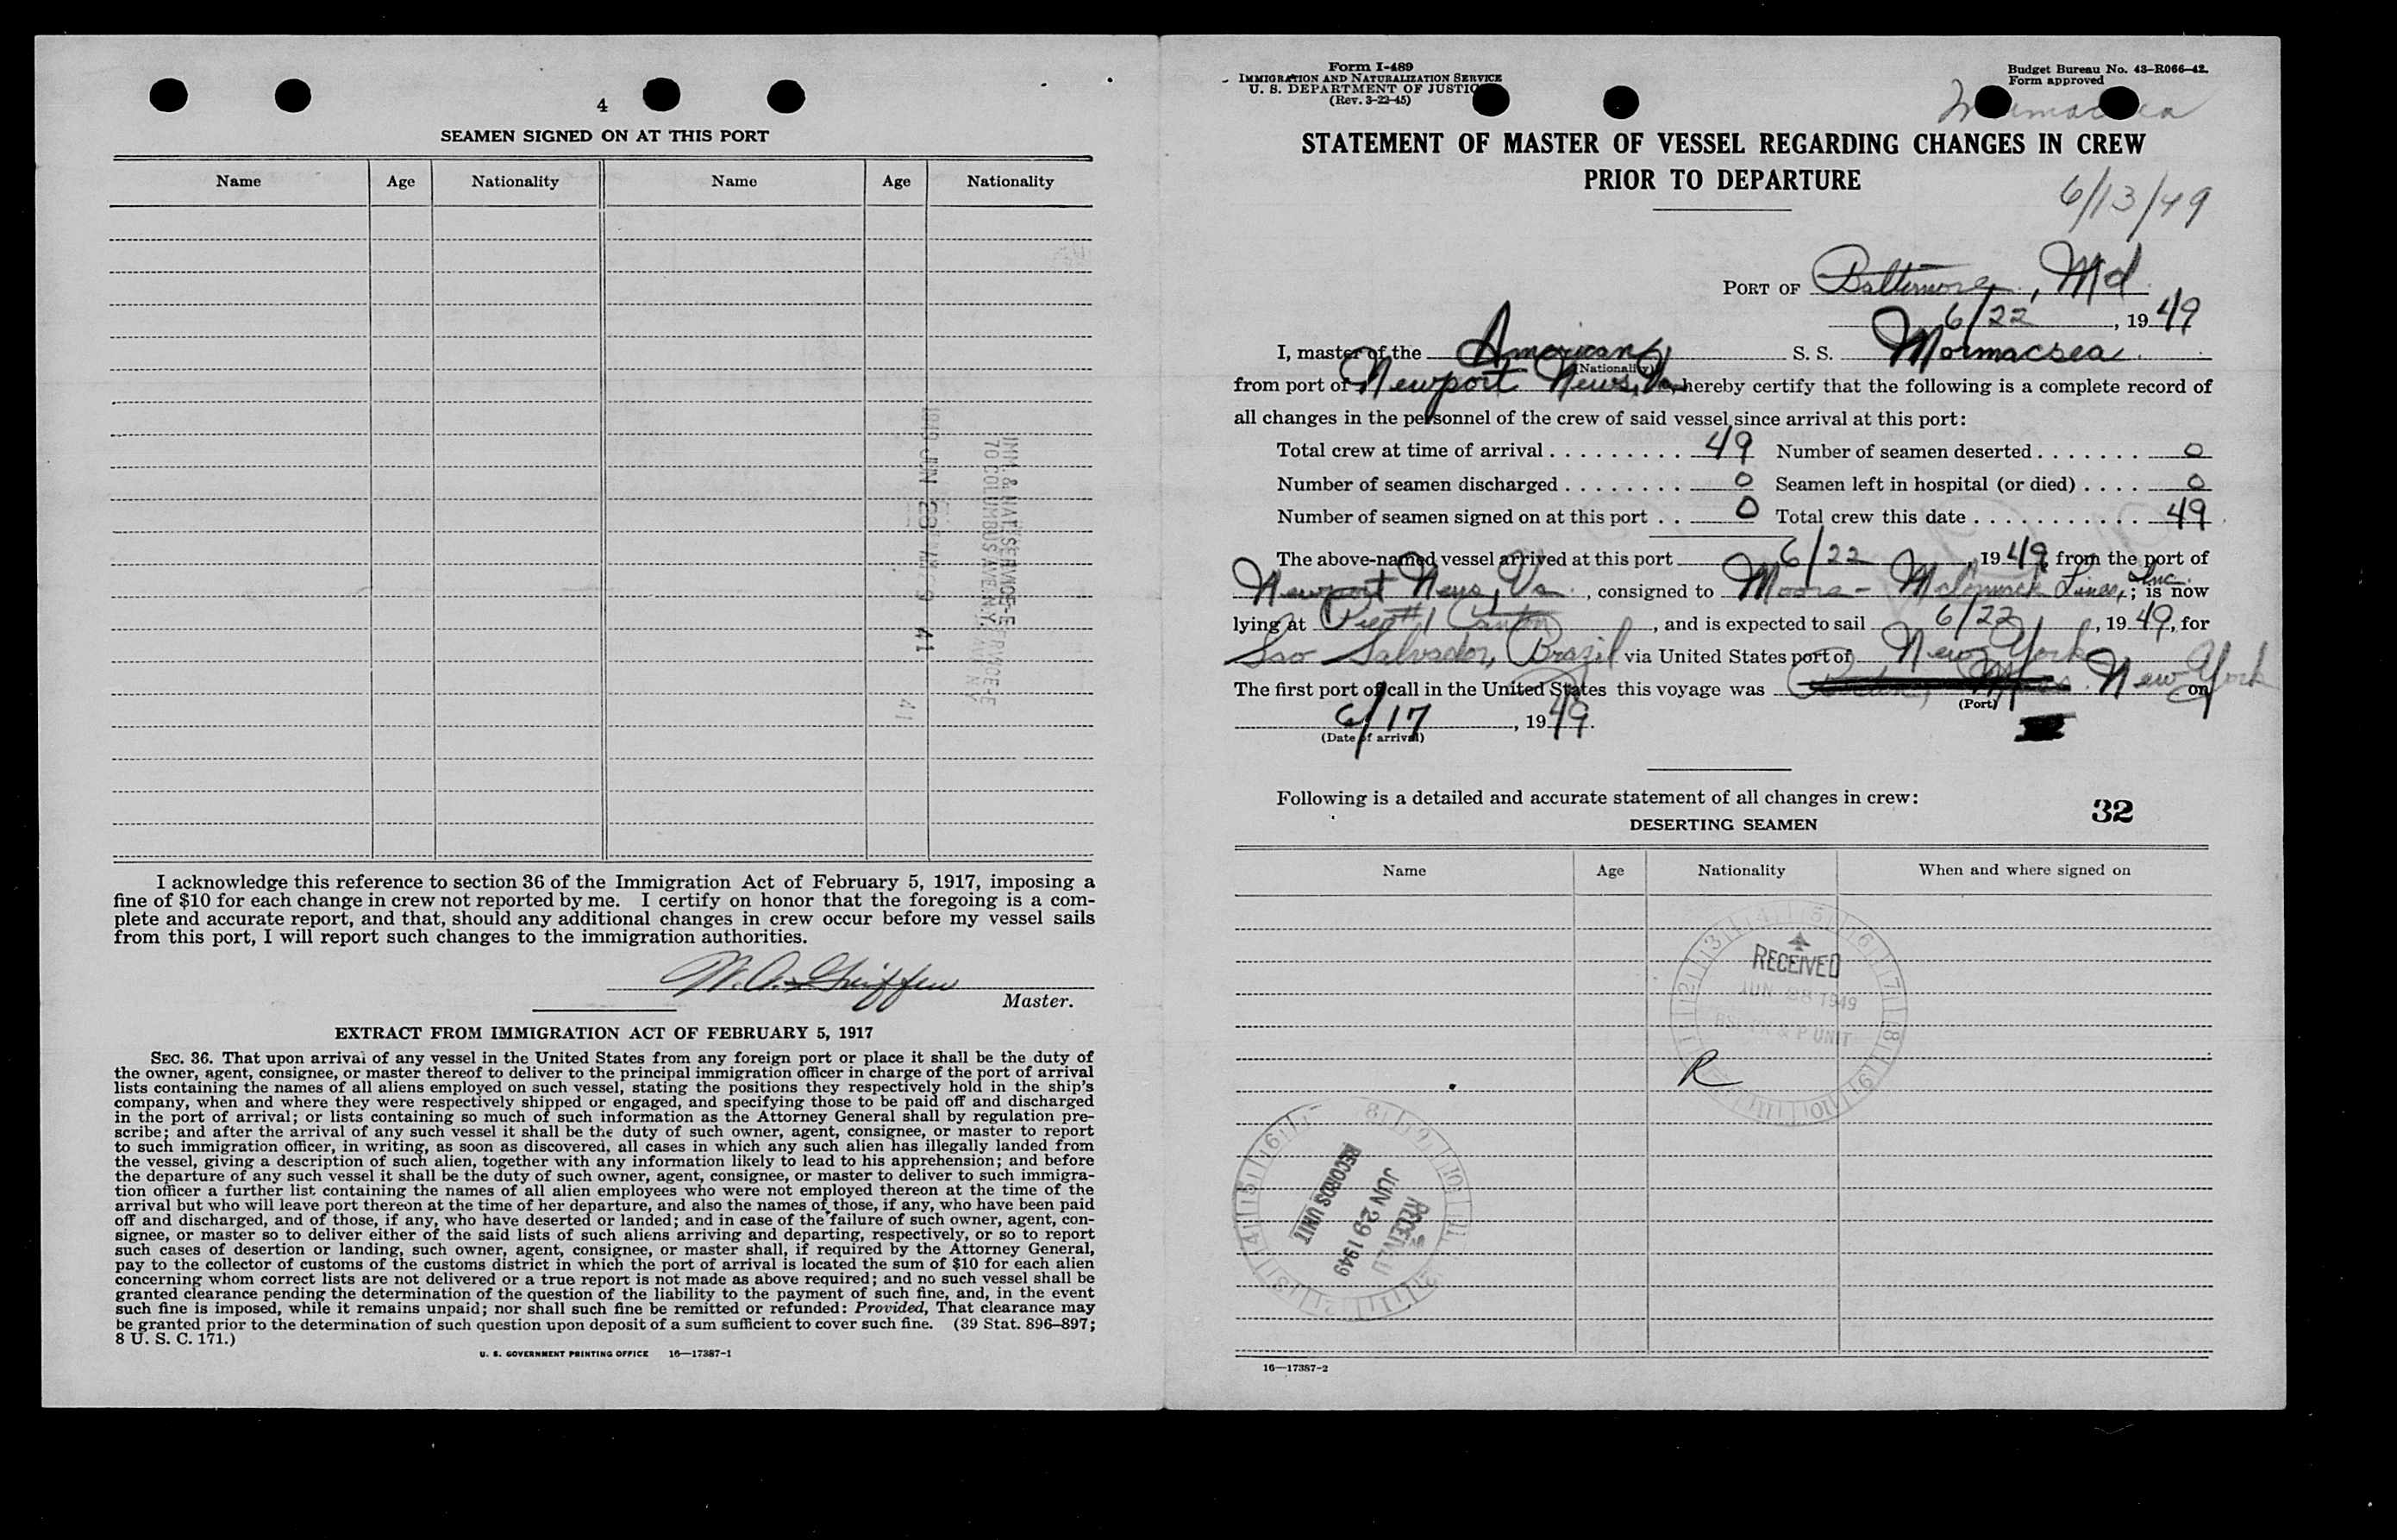 4
SEAMEN SIGNED ON AT THIS PORT
Name Age Nationality Name Age Nationality
IMM. & NAT. SERVICE-E
70 COLUMBUS AVE. N.Y.
1949 JUN 28
41
I acknowledge this reference to section 36 of the Immigration Act of February 5, 1917, imposing a
fine of $10 for each change in crew not reported by me. I certify on honor that the foregoing is a com-
plete and accurate report, and that, should any additional changes in crew occur before my vessel sails
from this port, I will report such changes to the immigration authorities.
Master.
EXTRACT FROM IMMIGRATION ACT OF FEBRUARY 5, 1917
SEC. 36. That upon arrival of any vessel in the United States from any foreign port or place it shall be the duty of
the owner, agent, consignee, or master thereof to deliver to the principal immigration officer in charge of the port of arrival
lists containing the names of all aliens employed on such vessel, stating the positions they respectively hold in the ship's
company, when and where they were respectively shipped or engaged, and specifying those to be paid off and discharged
in the port of arrival; or lists containing so much of such information as the Attorney General shall by regulation pre-
scribe; and after the arrival of any such vessel it shall be the duty of such owner, agent, consignee, or master to report
to such immigration officer, in writing, as soon as discovered, all cases in which any such alien has illegally landed from
the vessel, giving a description of such alien, together with any information likely to lead to his apprehension; and before
the departure of any such vessel it shall be the duty of such owner, agent, consignee, or master to deliver to such immigra-
tion officer a further list containing the names of all alien employees who were not employed thereon at the time of the
arrival but who will leave port thereon at the time of her departure, and also the names of those, if any, who have been paid
off and discharged, and of those, if any, who have deserted or landed; and in case of the failure of such owner, agent, con-
signee, or master so to deliver either of the said lists of such aliens arriving and departing, respectively, or so to report
such cases of desertion or landing, such owner, agent, consignee, or master shall, if required by the Attorney General,
pay to the collector of customs of the customs district in which the port of arrival is located the sum of $10 for each alien
concerning whom correct lists are not delivered or a true report is not made as above required; and no such vessel shall be
granted clearance pending the determination of the question of the liability to the payment of such fine, and, in the event
such fine is imposed, while it remains unpaid; nor shall such fine be remitted or refunded: Provided, That clearance may
be granted prior to the determination of such question upon deposit of a sum sufficient to cover such fine. (39 Stat. 896–897;
8 U. S. C. 171.)
U. S. GOVERNMENT PRINTING OFFICE 16—17387-1
Form I-489
IMMIGRATION AND NATURALIZATION SERVICE
U. S. DEPARTMENT OF JUSTICE
(Rev. 3-22-45)
Budget Bureau No. 43-R066-42.
Form approved
STATEMENT OF MASTER OF VESSEL REGARDING CHANGES IN CREW
PRIOR TO DEPARTURE
6/13/49
PORT OF Baltimore, Md
6/22, 1949
I, master of the American S. S. Mormacsea
(Nationality)
from port of Newport News, Va, hereby certify that the following is a complete record of
all changes in the personnel of the crew of said vessel since arrival at this port:
Total crew at time of arrival . . . . . . . . . 49 Number of seamen deserted . . . . . . . 0
Number of seamen discharged . . . . . . . . 0 Seamen left in hospital (or died) . . . . 0
Number of seamen signed on at this port . . 0 Total crew this date . . . . . . . . . . . 49
The above-named vessel arrived at this port 6/22, 1949, from the port of
Newport News, Va., consigned to Moore-McCormack Lines, Inc.; is now
lying at Pier #1 Canton, and is expected to sail 6/22, 1949, for
Sao Salvador, Brazil via United States port of New York
The first port of call in the United States this voyage was New York on
(Port)
6/17, 1949.
(Date of arrival)
Following is a detailed and accurate statement of all changes in crew:
32
DESERTING SEAMEN
Name Age Nationality When and where signed on
RECEIVED
JUN 28 1949
& P UNIT
R
RECEIVED
JUN 29 1949
RECORDS UNIT
16—17387-2